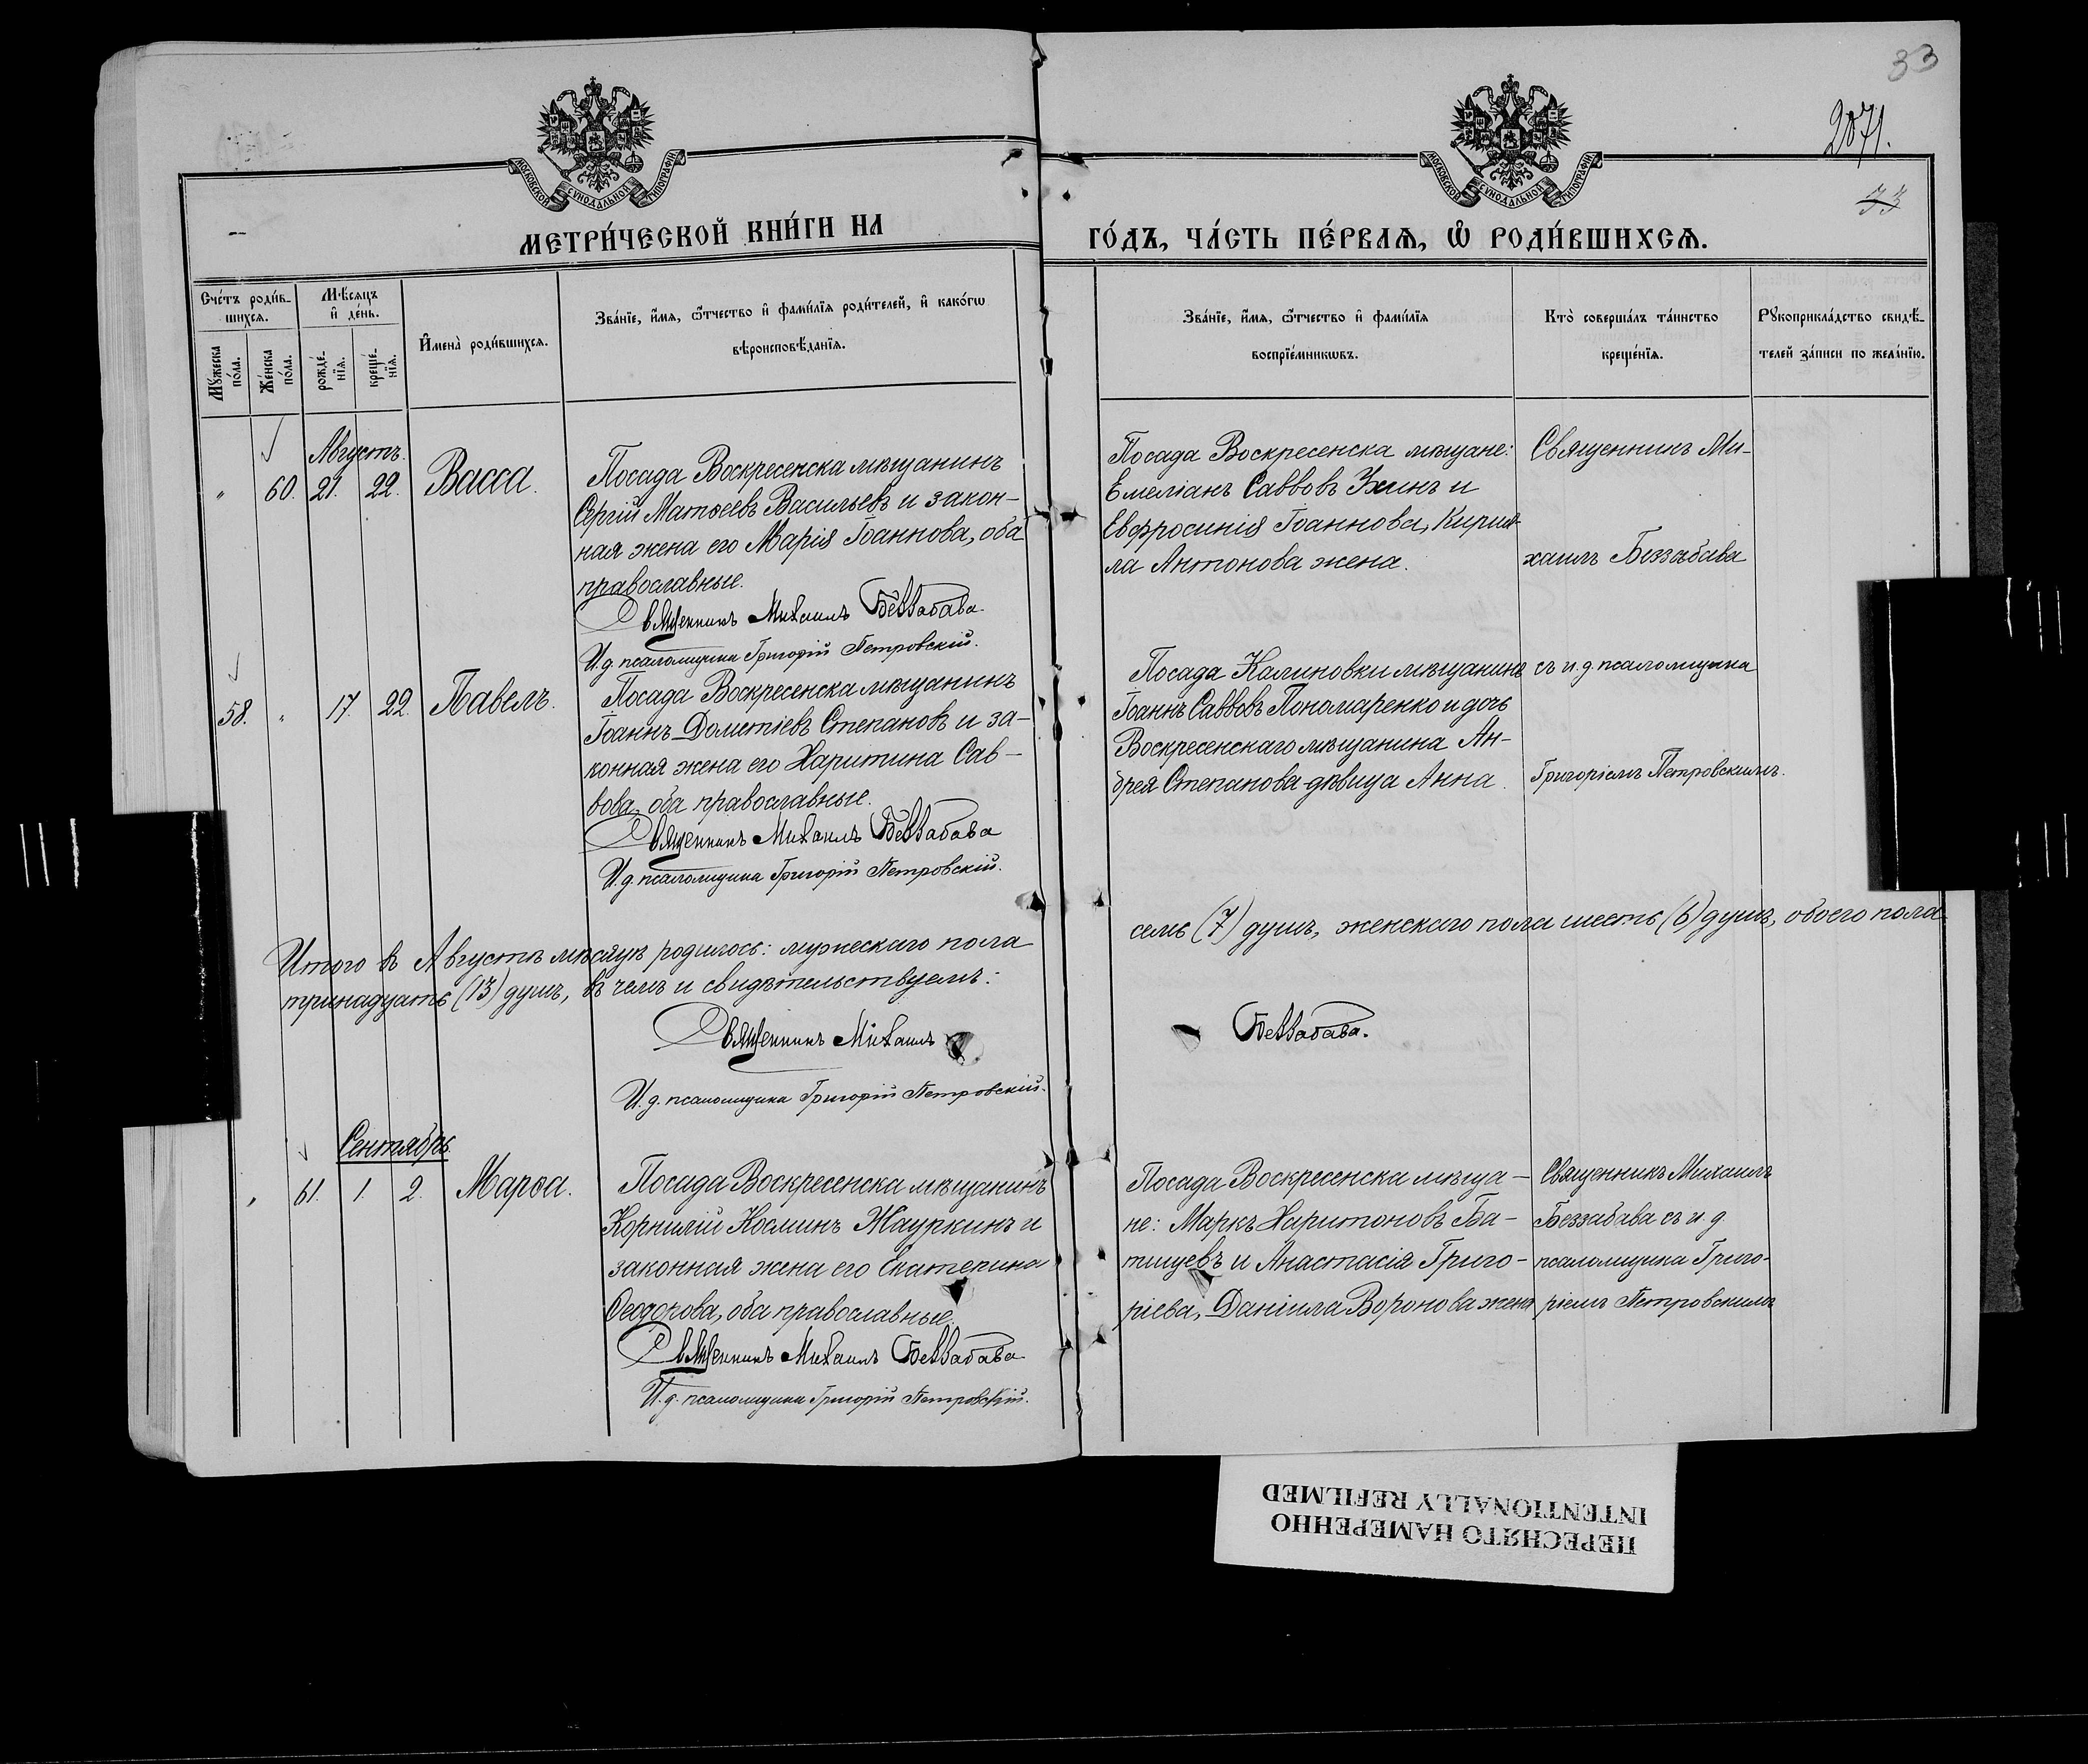 33
2071.
МОСКОВСКОЙ СѴНОДАЛЬНОЙ ТИПОГРАФІИ
МОСКОВСКОЙ СѴНОДАЛЬНОЙ ТИПОГРАФІИ
МЕТРИ́ЧЕСКОЙ КНИ́ГИ НА
ГО́ДЪ, ЧА́СТЬ ПЕ́РВАѦ, Ѡ РОДИ́ВШИХСѦ.
Сче́тъ роди́в-
шихсѧ.
Мꙋ́жеска по́ла.
Же́нска по́ла.
Мѣ́сѧцъ и҆ де́нь.
рожде́-нїѧ.
креще́-нїѧ.
И҆мена̀ роди́вшихсѧ.
Зва́нїе, и҆́мѧ, ѻ҆́тчество и҆ фамѝлїѧ роди́телей, и҆ како́гѡ
вѣроисповѣ́данїѧ.
Зва́нїе, и҆́мѧ, ѻ҆́тчество и҆ фамѝлїѧ
воспрїе́мникѡвъ.
Кто̀ соверша́лъ та́инство
креще́нїѧ.
Рꙋкоприкла́дство свидѣ́-
телей за́писи по жела́нїю.
Августъ.
" 60. 21. 22. Васса.
Посада Воскресенска мѣщанинъ
Сергій Матѳеевъ Васильевъ и закон-
ная жена его Марія Іоаннова, оба
православные.
Священникъ Михаилъ Беззабава
И. д. псаломщика Григорій Петровскій.
Посада Воскресенска мѣщане:
Емеліанъ Савовъ и
Евфросинія Іоаннова, Кирил-
ла Антонова жена.
Священникъ Ми-
хаилъ Беззабава
58. " 17. 22. Павелъ.
Посада Воскресенска мѣщанинъ
Іоаннъ Домитіевъ Степановъ и за-
конная жена его Харитина Сав-
вова, оба православные.
Священникъ Михаилъ Беззабава
И. д. псаломщика Григорій Петровскій.
Посада Калиновки мѣщанинъ
Іоаннъ Саввовъ Пономаренко и дочь
Воскресенскаго мѣщанина Ан-
дрея Степанова дѣвица Анна.
съ и. д. псаломщика
Григоріемъ Петровскимъ.
Итого въ Августѣ мѣсяцѣ родилось: мужескаго пола
семь (7) душъ, женскаго пола шесть (6) душъ, обоего пола
тринадцать (13) душъ, въ чемъ и свидѣтельствуемъ:
Священникъ Михаилъ
Беззабава.
И. д. псаломщика Григорій Петровскій.
Сентябрь
" 61. 1. 2. Марѳа.
Посада Воскресенска мѣщанинъ
Корнилій Косминъ Жауркинъ и
законная жена его Екатерина
Ѳеодорова, оба православные.
Священникъ Михаилъ Беззабава
И. д. псаломщика Григорій Петровскій.
Посада Воскресенска мѣща-
не: Маркъ Харитоновъ Ба-
тищевъ и Анастасія Григо-
ріева, Даніила Воронова жена
Священникъ Михаилъ
Беззабава съ и. д.
псаломщика Григо-
ріемъ Петровскимъ
ПЕРЕСНЯТО НАМЕРЕННО
INTENTIONALLY REFILMED